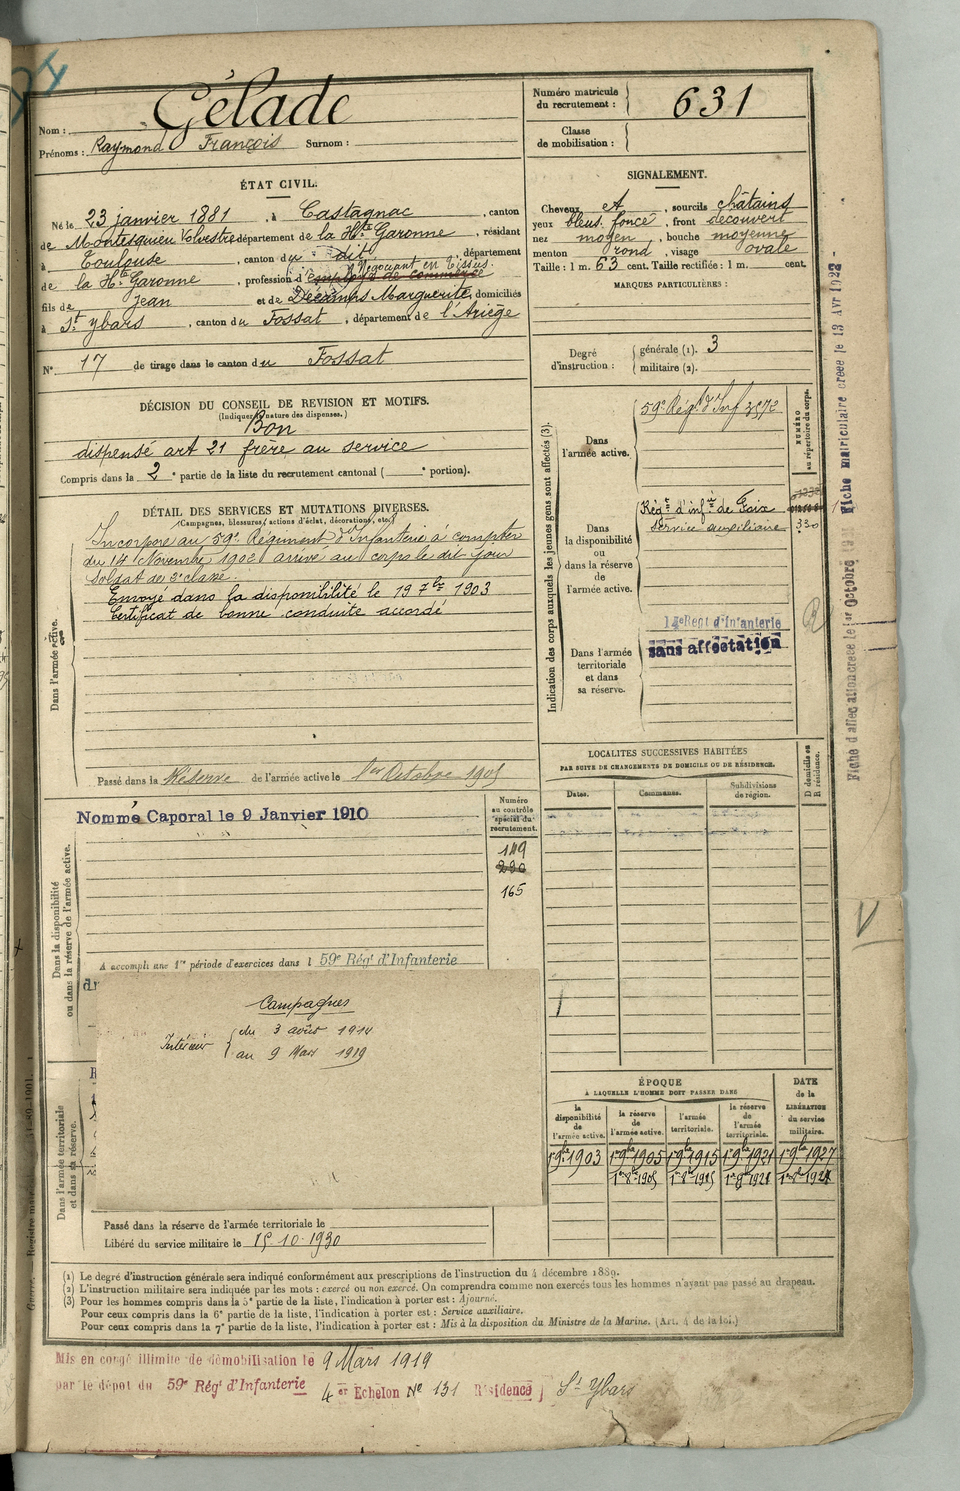 Nom : Gélade
Prénoms : Raymond François Surnom :
Numéro matricule du recrutement : 631
Classe de mobilisation :
ÉTAT CIVIL.
Né le 23 janvier 1881, à Castagnac, canton
de Montesquieu Volvestre département de la Hte Garonne, résidant
à Toulouse, canton du dit, département
de la Hte Garonne, profession d'employé de commerce Négociant en tissus.
fils de Jean et de Décamps Marguerite, domiciliés
à St Ybars, canton du Fossat, département de l'Ariège
N° 17 de tirage dans le canton du Fossat
SIGNALEMENT.
Cheveux et, sourcils châtains
yeux bleus foncé, front découvert
nez moyen, bouche moyenne
menton rond, visage ovale
Taille : 1 m. 63 cent. Taille rectifiée : 1 m. cent.
MARQUES PARTICULIÈRES :
Degré d'instruction : générale (1). 3
militaire (2).
DÉCISION DU CONSEIL DE REVISION ET MOTIFS.
(Indiquer la nature des dispenses.)
Bon
dispensé art 21 frère au service
Compris dans la 2e partie de la liste du recrutement cantonal ( e portion).
DÉTAIL DES SERVICES ET MUTATIONS DIVERSES.
(Campagnes, blessures, actions d'éclat, décorations, etc.)
Dans l'armée active.
Incorporé au 59e Régiment d'Infanterie à compter
du 14 Novembre 1902 arrivé au corps le dit jour
soldat de 2e classe.
Envoyé dans la disponibilité le 19 7bre 1903
Certificat de bonne conduite accordé
Passé dans la Réserve de l'armée active le 1er Octobre 1905
Indication des corps auxquels les jeunes gens sont affectés (3).
NUMÉRO au répertoire du corps.
Dans l'armée active.
59e Régt d'Inf 3572
Dans la disponibilité ou dans la réserve de l'armée active.
Régt d'infie de Foix
Service auxiliaire
330
Dans l'armée territoriale et dans sa réserve.
14e Régt d'Infanterie
sans affectation
R
Fiche d'affectation créée le 1er Octobre
Fiche matriculaire créée le 13 Avr 1922
LOCALITÉS SUCCESSIVES HABITÉES
PAR SUITE DE CHANGEMENTS DE DOMICILE OU DE RÉSIDENCE.
Dates. Communes. Subdivisions de région.
D domicile ou R résidence.
Dans la disponibilité ou dans la réserve de l'armée active.
Nommé Caporal le 9 Janvier 1910
Numéro au contrôle spécial du recrutement.
149
230
165
A accompli une 1re période d'exercices dans l 59e Régt d'Infanterie
Campagnes
Intérieur du 3 août 1914
au 9 Mars 1919
Dans l'armée territoriale et dans sa réserve.
Passé dans la réserve de l'armée territoriale le
Libéré du service militaire le 15-10-1930
ÉPOQUE
À LAQUELLE L'HOMME DOIT PASSER DANS
la disponibilité de l'armée active.
la réserve de l'armée active.
l'armée territoriale.
la réserve de l'armée territoriale.
DATE de la LIBÉRATION du service militaire.
1er 9bre 1903 1er 9bre 1905 1er 9bre 1915 1er 9bre 1921 1er 9bre 1927
V
(1) Le degré d'instruction générale sera indiqué conformément aux prescriptions de l'instruction du 4 décembre 1889.
(2) L'instruction militaire sera indiquée par les mots : exercé ou non exercé. On comprendra comme non exercés tous les hommes n'ayant pas passé au drapeau.
(3) Pour les hommes compris dans la 5e partie de la liste, l'indication à porter est : Ajourné.
Pour ceux compris dans la 6e partie de la liste, l'indication à porter est : Service auxiliaire.
Pour ceux compris dans la 7e partie de la liste, l'indication à porter est : Mis à la disposition du Ministre de la Marine. (Art. 4 de la loi.)
Mis en congé illimité de démobilisation le 9 Mars 1919
par le dépôt du 59e Régt d'Infanterie 4er Echelon N° 131 Résidence St Ybars